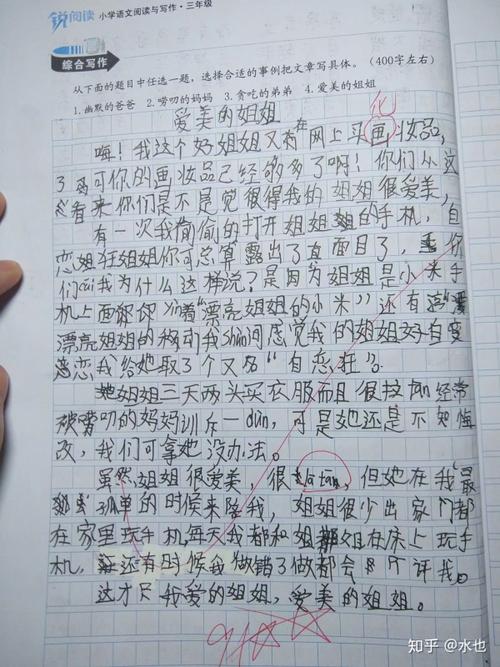 锐阅读 小学语文阅读与写作·三年级
综合写作
从下面的题目中任选一题,选择合适的事例把文章写具体。(400字左右)
1.幽默的爸爸 2.唠叨的妈妈 3.贪吃的弟弟 4.爱美的姐姐
爱美的姐姐
化
嗨!我这个奶姐姐又在网上买画妆品,
了 可你的画妆品已经够多了啊!你们从这
看来你们是不是觉得我的姐姐很爱美,
有一次我偷偷的打开姐姐的手机,自
恋姐狂姐姐你可总算露出了真面目了,你
们cāi我为什么这样说?是因为姐姐是小米手
机上面 着“漂亮姐姐的小米”还有
漂亮姐姐的移动我shùn间感觉我的姐姐 自
恋我给她取了个又名“自恋狂”。
姐姐三天两头买衣服而且很拉tān经常
被唠叨的妈妈训斥一dùn,可是她还是不知悔
改,我们可拿她没办法。
虽然姐姐很爱美,很lā tān,但她在我最
孤单的时候来陪我,姐姐很少出家门都
在家里玩手机每天我都和姐姐在床上玩手
机,还有时候我做错了 都会 评我。
这才是我爱的姐姐,爱美的姐姐。
知乎 @水也